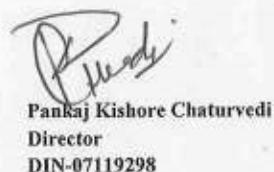 Pankaj Kishore Chaturvedi
Director
DIN-07119298